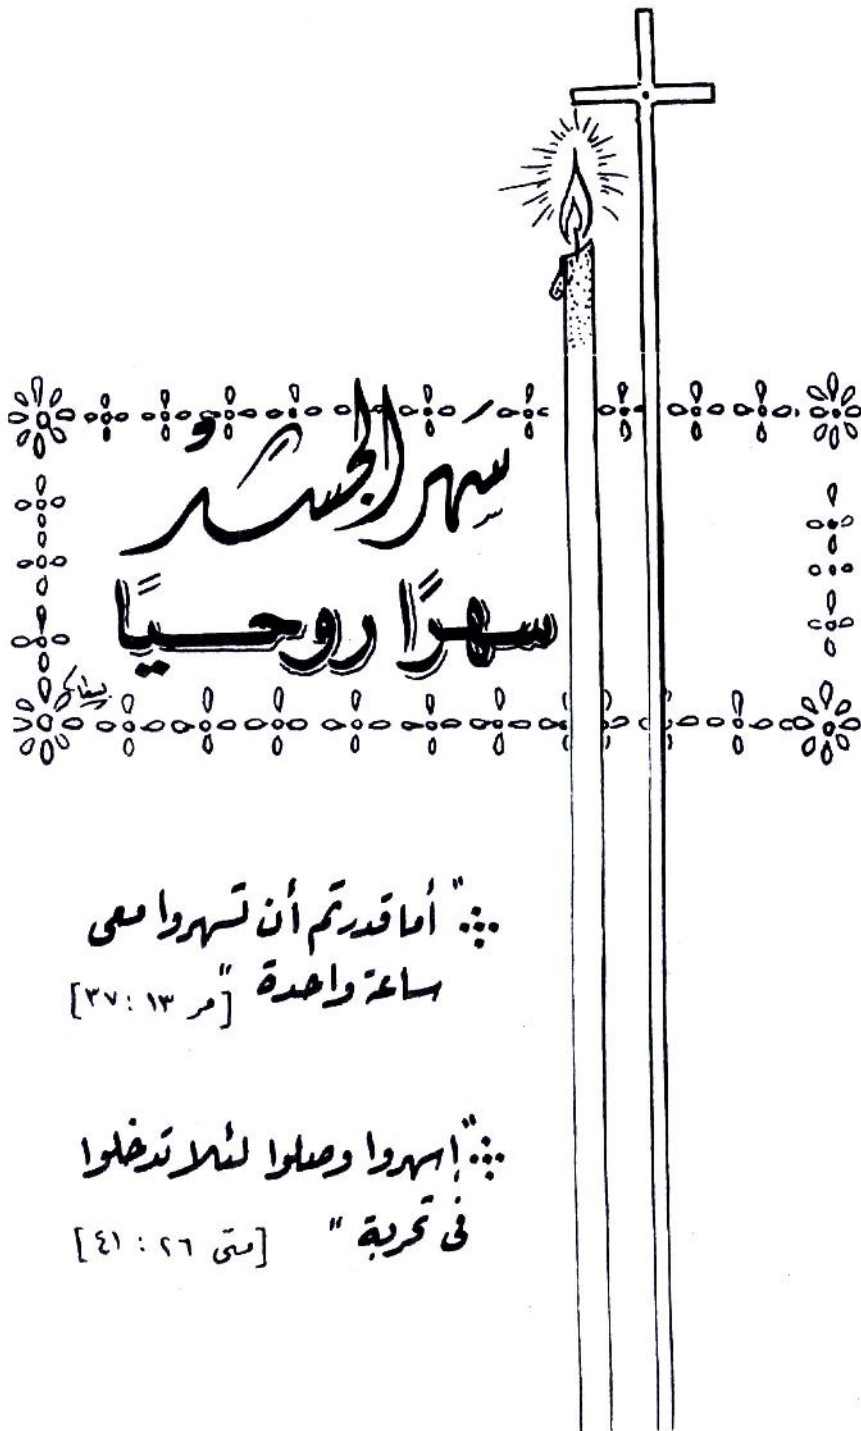 سهر الجسدُ
سهرًا روحيًا
"أما قدرتم أن تسهروا معى
ساعة واحدة" [مر ١٣ : ٣٧]
"إسهروا وصلوا لئلا تدخلوا
فى تجربة" [متى ٢٦ : ٤١]